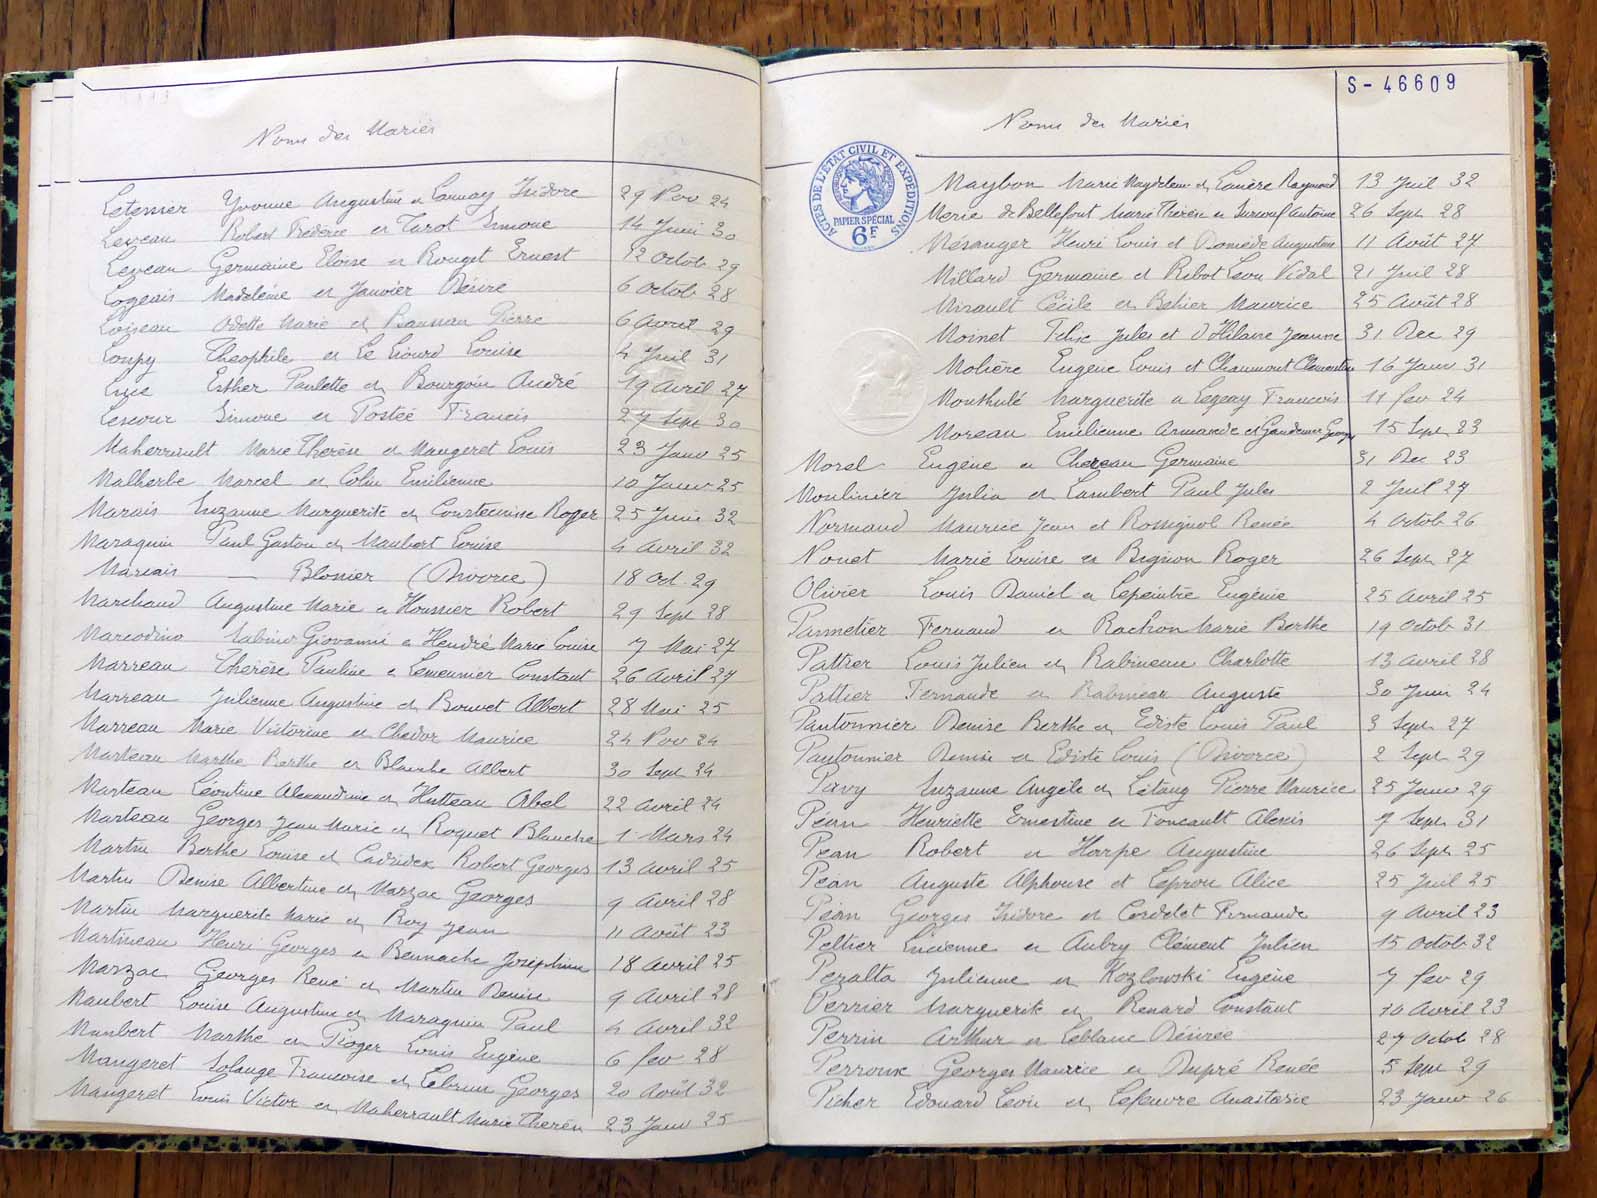 Noms des Mariés
Letessier Yvonne Augustine et Launay Isidore 29 Nov 24
Leveau Robert Frédéric et Turot Simone 14 Juin 30
Leveau Germaine Eloise et Rouget Ernest 12 Octob 29
Logeais Madeleine et Janvier Désiré 6 Octob 28
Loiseau Odette Marie et Pierre 6 Avril 29
Loupy Théophile et Le Liourd Louise 4 Juil 31
Luce Esther Paulette et Bourgoin André 19 Avril 27
Lescour Simone et Posteé Francis 27 Sept 30
Maherrault Marie Thérèse et Maugeret Louis 23 Janv 25
Malherbe Marcel et Colin Emilienne 10 Janv 25
Marais Suzanne Marguerite et Courtecuisse Roger 25 Juin 32
Maraquin Paul Gaston et Maubert Louise 4 Avril 32
Marais — Blossier (Divorce) 18 Oct 29
Marchand Augustine Marie et Houssier Robert 29 Sept 28
Marcodino Sabino Giovanni et Hendré Marie Louise 7 Mai 27
Marreau Therèse Pauline et Lemeunier Constant 26 Avril 27
Marreau Julienne Augustine et Bouvet Albert 28 Mai 25
Marreau Marie Victorine et Chedor Maurice 24 Nov 24
Marteau Marthe Berthe et Blanche Albert 30 Sept 24
Marteau Léontine Alexandrine et Hutteau Abel 22 Avril 24
Marteau Georges Jean Marie et Roquet Blanche 1 Mars 24
Martin Berthe Louise et Robert Georges 13 Avril 25
Martin Denise Albertine et Marzac Georges 9 Avril 28
Martin Marguerite Marie et Roy Jean 11 Août 23
Martineau Henri Georges et Bennache Joséphine 18 Avril 25
Marzac Georges René et Martin Denise 9 Avril 28
Maubert Louise Augustine et Maraquin Paul 4 Avril 32
Maubert Marthe et Pioger Louis Eugène 6 Fev 28
Maugeret Solange Francoise et Lebrun Georges 20 Août 32
Maugeret Louis Victor et Maherrault Marie Therèse 23 Janv 25
S-46609
Noms des Mariés
ACTES DE L'ETAT CIVIL ET EXPEDITIONS
PAPIER SPÉCIAL
6F
Maybon Marie Magdeleine et Lanière Raymond 13 Juil 32
Merie de Bellefont Marie Thérèse et Surcouf Antoine 26 Sept 28
Mésanger Henri Louis et Domède Augustine 11 Août 27
Millard Germaine et Ribot Leon Vidal 21 Juil 28
Mirault Cécile et Behier Maurice 25 Août 28
Moinet Felix Jules et d'Hilaire Jeanne 31 Dec 29
Molière Eugène Louis et Chaumont Clementine 16 Janv 31
Monthulé Marguerite et Legeay Francois 11 fev 24
Moreau Emilienne Armande et Georges 15 Sept 23
Morel Eugène et Chereau Germaine 31 Dec 23
Moulinier Julia et Lambert Paul Jules 2 Juil 27
Normand Maurice Jean et Rossignol Renée 4 Octob 26
Nouet Marie Louise et Bignon Roger 26 Sept 27
Olivier Louis Daniel et Lepeintre Eugénie 25 Avril 25
Parmetier Fernand et Rachon Marie Berthe 19 Octob 31
Pattier Louis Julien et Rabineau Charlotte 13 Avril 28
Pattier Fernande et Rabineau Auguste 30 Juin 24
Pautonnier Denise Berthe et Ediste Louis Paul 3 Sept 27
Pautonnier Denise et Ediste Louis (Divorce) 2 Sept 29
Pavy Suzanne Angèle et Létang Pierre Maurice 25 Janv 29
Péan Henriette Ernestine et Foucault Alexis 7 Sept 31
Pean Robert et Harpe Augustine 26 Sept 25
Pean Auguste Alphonse et Lepron Alice 25 Juil 25
Péan Georges Isidore et Cordelet Fernande 9 Avril 23
Peltier Lucienne et Aubry Clément Julien 15 Octob 32
Peralta Julienne et Kozlowski Eugène 7 fev 29
Perrier Marguerite et Renard Constant 10 Avril 23
Perrin Arthur et Leblanc Désirée 27 Octob 28
Perroux Georges Maurice et Dupré Renée 5 Sept 29
Picher Edouard Leon et Lefeuvre Anastasie 23 Janv 26